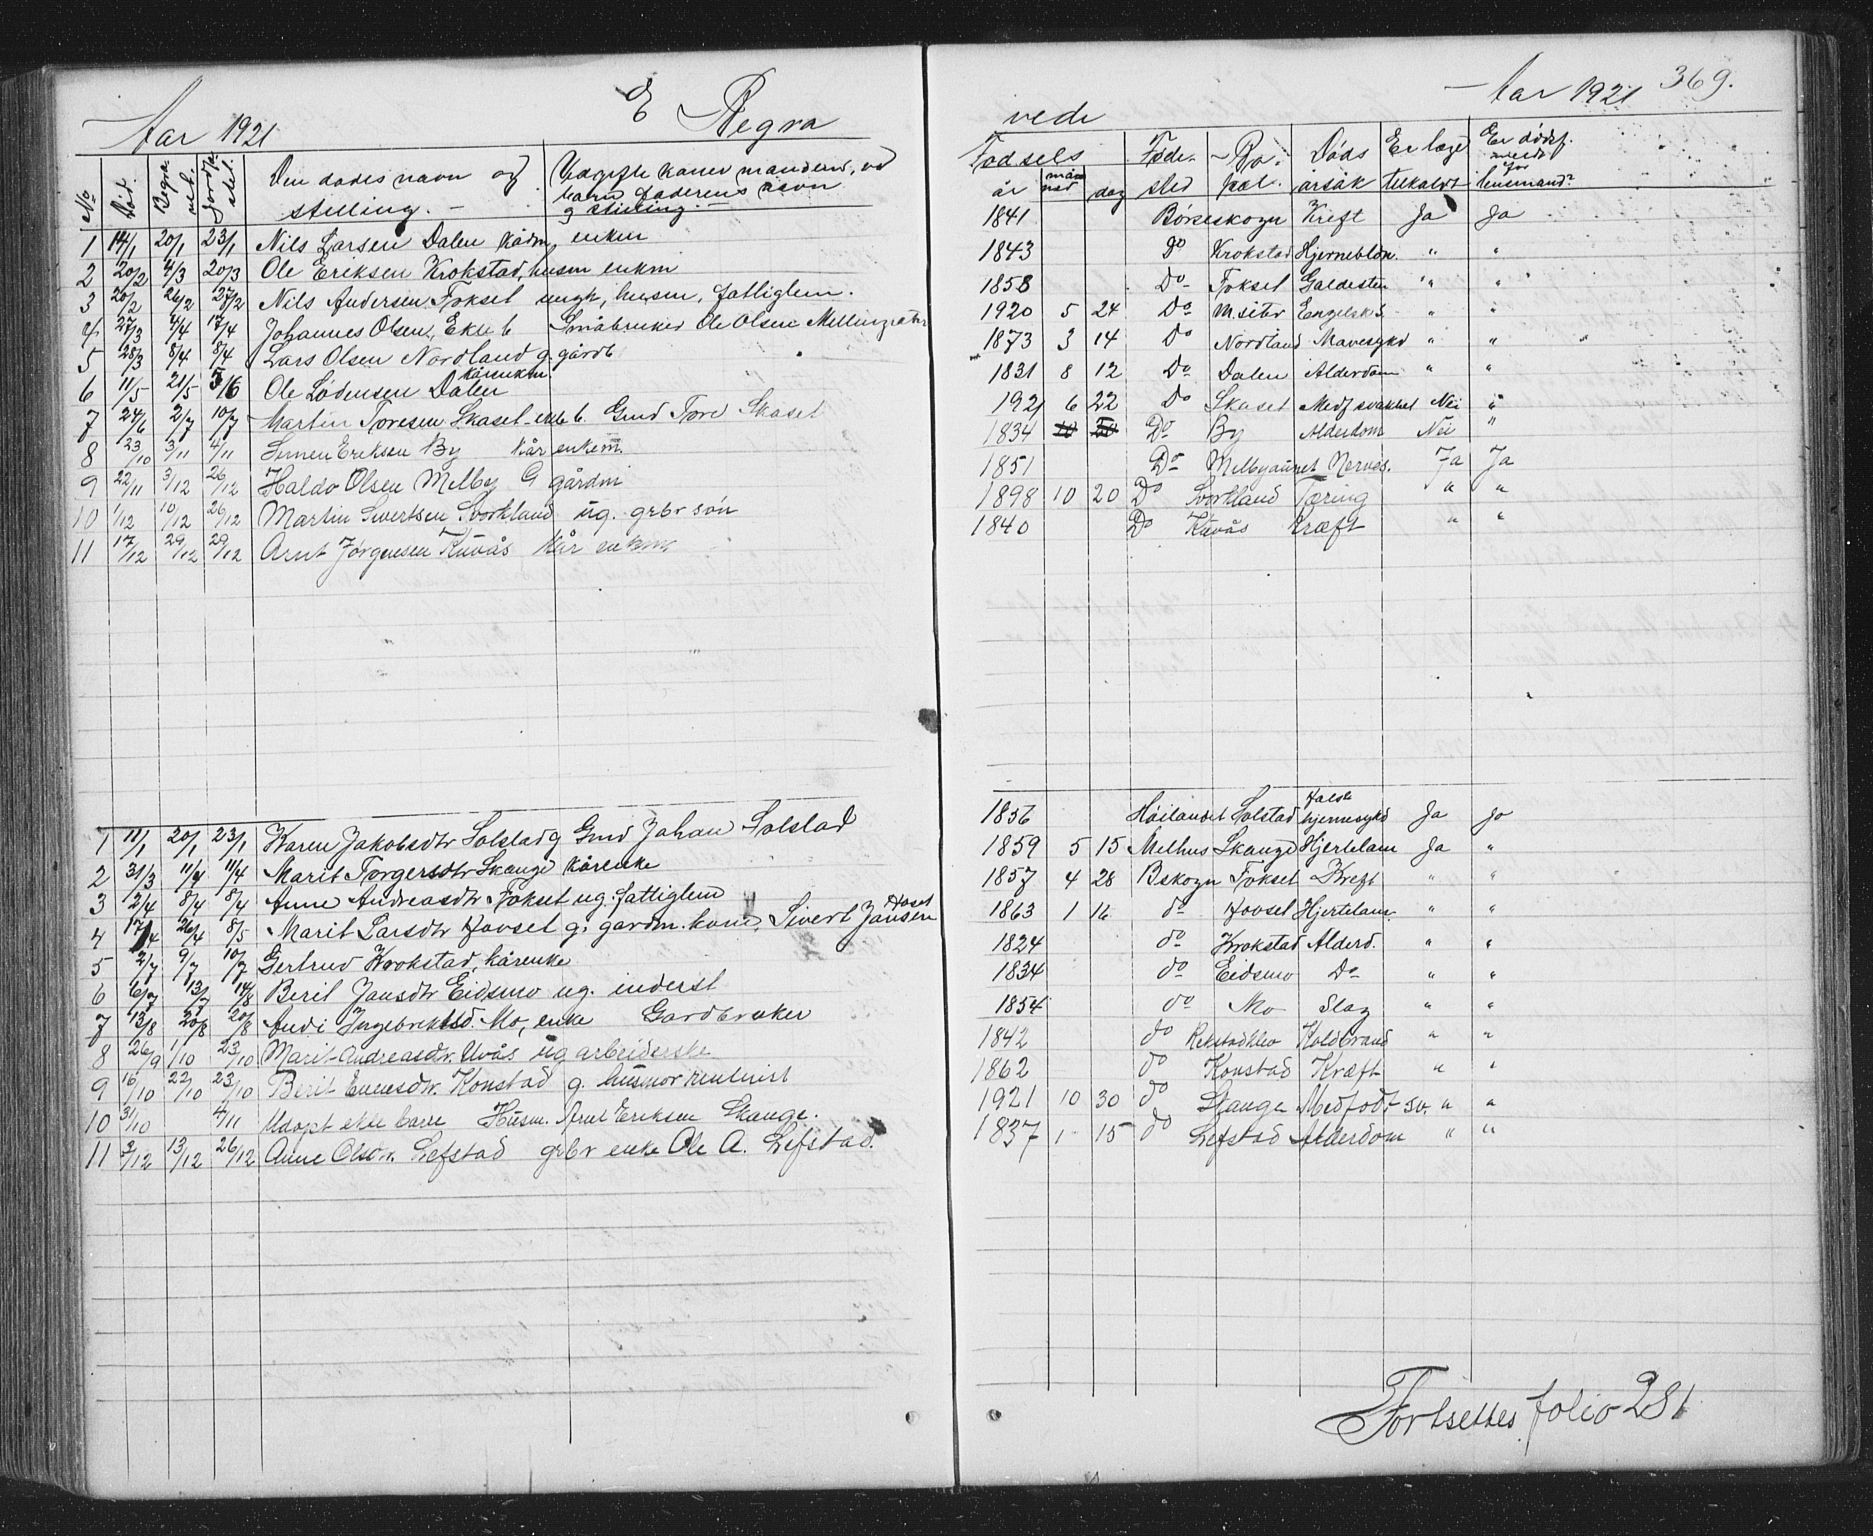 Aar 1921
E Begra
vede
Aar 1921 369.
No Død. Begra vet. Jordfæstet. Den dødes navn og stilling. Udgifte koner mandens, ved børn faderens navn og stilling.
Fødsels år måned dag Fødested Bopæl. Dødsårsak Er læge tilkaldt Er dødsf. meldt for lensmand?
1 14/1 20/1 23/1 Nils Larsen Dalen kårm, enkem 1841 Børseskogn Kreft Ja Ja
2 20/2 4/3 20/3 Ole Eriksen Krokstad, husm enkm 1843 do Krokstad Hjerneblød. " "
3 20/2 26/2 27/2 Nils Andersen Foksel ungk, husm, fattiglem. 1858 Do Foksel Galdesten " "
4 27/3 4/4 17/4 Johannes Olsen, Ekte b Småbruker Ole Olsen Mellingsæter 1920 5 24 Do M.seter Engelsk S. " "
5 28/3 8/4 8/4 Lars Olsen Nordland g. gårdb 1873 3 14 Do Nordland Mavesykd " "
6 11/5 21/5 5/6 Ole Lødensen Dalen kårenkm. 1831 8 12 Do Dalen Alderdom " "
7 24/6 2/7 10/7 Martin Toresen Skaset ekte b. Gmd Tore Skaset 1921 6 22 Do Skaset Medf svakhet Nei "
8 23/10 3/11 4/11 Simen Eriksen By kår enkem 1834 10 20 Do By Alderdom Nei "
9 22/11 3/12 26/12 Haldo Olsen Melby G gårdm 1851 Do Melbyaunet Nerves. Ja Ja
10 1/12 10/12 26/12 Martin Sivertsen Svorkland ug. grbr søn 1898 10 20 Do Svorkland Tæring " "
11 17/12 29/12 29/12 Arnt Jørgensen Kuvås kår enkm 1840 Do Kuvås Kræft " "
1 11/1 20/1 23/1 Karen Jakobsdtr Solstad g Gmd Johan Solstad 1856 Høilandet Solstad Halsb hjernesykd Ja Ja
2 31/3 11/4 11/4 Marit Torgersdtr Skauge kårenke 1859 5 15 Melhus Skauge Hjertelam Ja "
3 2/4 8/4 8/4 Anne Andreasdtr Foksel ug. fattiglem 1857 4 28 Bskogn Foksel Kreft " "
4 17/4 26/4 8/5 Marit Larsdtr Hovset g: gardm. kone, Sivert Jansen Hovset 1863 1 16 do Hovset Hjertelam. " "
5 2/7 9/7 10/7 Gertrud Krokstad, kårenke 1824 do Krokstad Alderd. " "
6 6/7 13/7 14/8 Beril Jansdtr Eidsmo ug. inderst 1834 do Eidsmo Do " "
7 13/8 20/8 20/8 Andi Ingebrektsd. Mo, enke Gardbruker 1854 do Mo Slag " "
8 26/9 1/10 23/10 Marit Andreasdtr. Uvås ug arbeiderske 1842 do Rekstadklev Koldbrand " "
9 16/10 22/10 23/10 Berit Evensdtr. Konstad g. husmor 1862 do Konstad Kræft " "
10 31/10 4/11 Udøpt ekte barn Husm. Arnt Eriksen Skauge. 1921 10 30 do Skauge Medfødt sv. " "
11 3/12 13/12 26/12 Anne Olsdtr. Lefstad grbr enke Ole A. Lefstad. 1837 1 15 do Lefstad Alderdom " "
Fortsettes folio 281